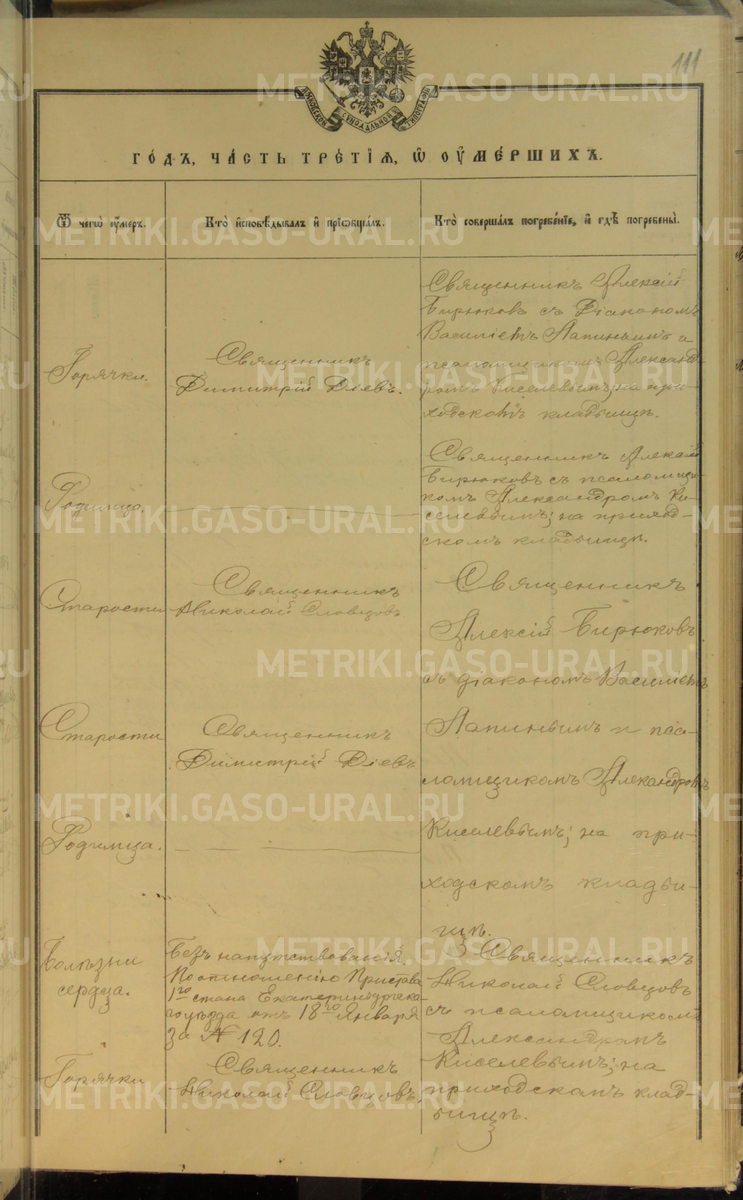 111
МОСКОВСКОЙ СѴНОДАЛЬНОЙ ТИПОГРАФІИ
ГОДЪ, ЧАСТЬ ТРЕТІЯ, Ѿ ОУМЕРШИХЪ.
Ѿ чегѡ оумеръ.
Кто исповѣдывалъ и пріобщалъ.
Кто совершалъ погребеніе, и гдѣ погребены.
Горячки.
Священникъ
Димитрій Діевъ.
Священникъ Алексій
Бирюковъ съ Діакономъ
Василіемъ Лапинымъ и
псаломщикомъ Александ-
ромъ Киселевымъ; на при-
ходскомъ кладбищѣ.
Родимца.
Священникъ Алексій
Бирюковъ съ псаломщи-
комъ Александромъ Ки-
селевымъ; на приход-
скомъ кладбищѣ.
Старости
Священникъ
Николай Словцовъ
Старости
Священникъ
Димитрій Діевъ
Родимца.
Священникъ
Алексій Бирюковъ
съ діакономъ Василіемъ
Лапинымъ и пса-
ломщикомъ Александромъ
Киселевымъ; на при-
ходскомъ кладби-
щѣ.
Болѣзни
сердца.
Безъ напутствованія.
По отношенію Пристава
1го стана Екатеринбургска-
го уѣзда отъ 18го Января
за № 120.
Священникъ
Николай Словцовъ
съ псаломщикомъ
Александромъ
Киселевымъ; на
приходскомъ клад-
бищѣ.
Горячки
Священникъ
Николай Словцовъ,
METRIKI.GASO-URAL.RU